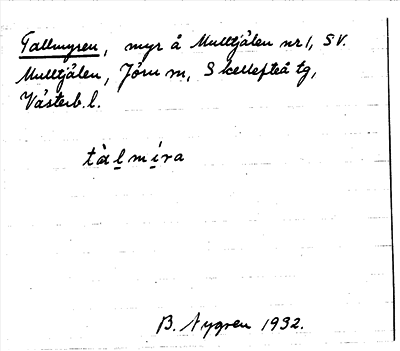 Tallmyren, myr å Mulltjälen nr 1, SV.
Mulltjälen, Jörn sn, Skellefteå tg,
Västerb. l.
tàl̠mi̠ra
B. Nygren 1932.